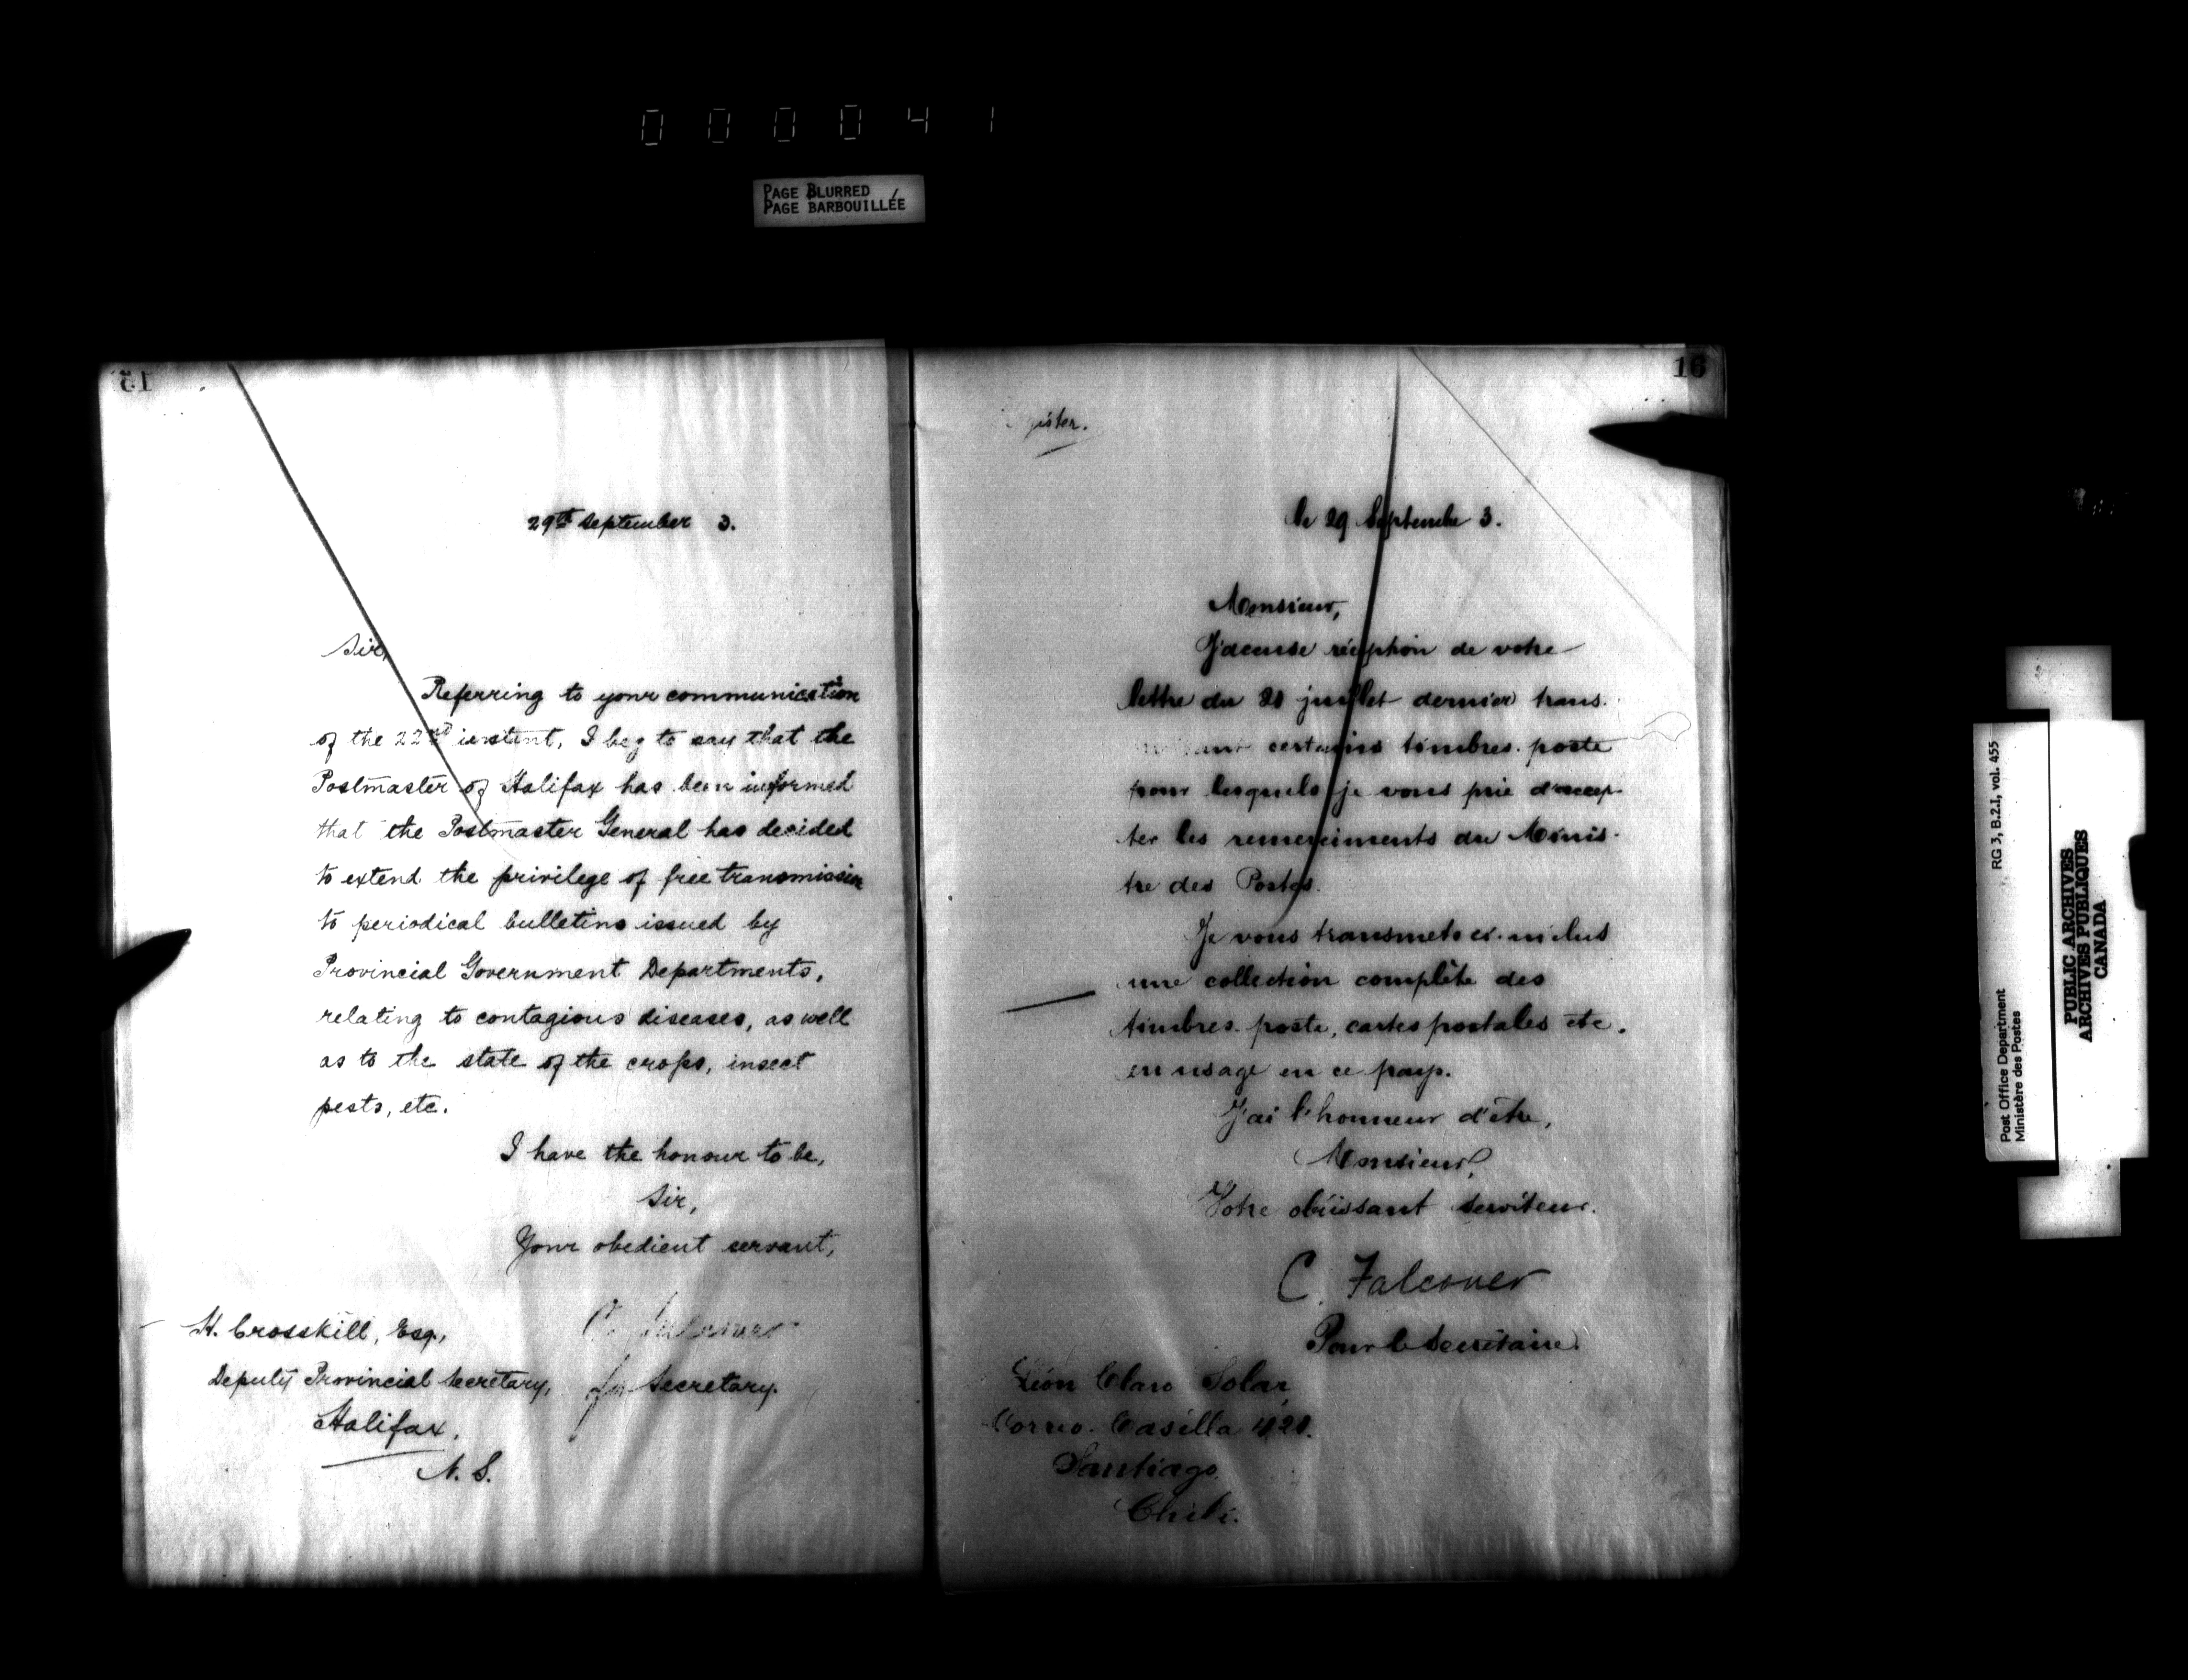 000041
PAGE BLURRED
PAGE BARBOUILLÉE
15
29th September 3.
Sir,
Referring to your communication
of the 22nd instant, I beg to say that the
Postmaster of Halifax has been informed
that the Postmaster General has decided
to extend the privilege of free transmission
to periodical bulletins issued by
Provincial Government Departments,
relating to contagious diseases, as well
as to the state of the crops, insect
pests, etc.
I have the honour to be,
Sir,
Your obedient servant,
C. Falconer
for Secretary.
H. Crosskill, Esq.,
Deputy Provincial Secretary,
Halifax,
N. S.
16
le 29 Septembre 3.
Monsieur,
J'accuse réception de votre
lettre du juillet dernier trans-
certains timbres-poste
pour lesquels je vous prie d'accep-
ter les remerciments du Minis-
tre des Postes.
Je vous transmets ci-inclus
une collection complète des
timbres-poste, cartes postales etc.
en usage en ce pays.
J'ai l'honneur d'être,
Monsieur,
Votre obéissant serviteur.
C. Falconer
Pour le Secrétaire.
Léon Claro Solar,
Correo. Casilla
Santiago,
Chili.
RG 3, B.2.I, vol. 455
Post Office Department
Ministère des Postes
PUBLIC ARCHIVES
ARCHIVES PUBLIQUES
CANADA